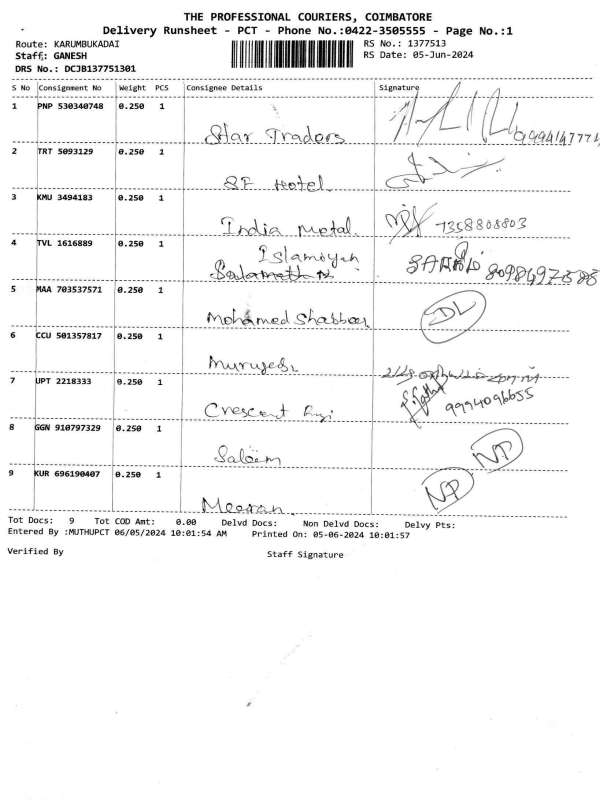 THE PROFESSIONAL COURIERS, COIMBATORE
Delivery Runsheet - PCT - Phone No.:0422-3505555 - Page No.:1
Route: KARUMBUKADAI RS No.: 1377513
Staff: GANESH RS Date: 05-Jun-2024
DRS No.: DCJB137751301
S No Consignment No Weight PCS Consignee Details Signature
1 PNP 530340748 0.250 1
Star Traders
2 TRT 5093129 0.250 1
SF Hotel
3 KMU 3494183 0.250 1
India Metal 7358808803
4 TVL 1616889 0.250 1
Islamiyah
5 MAA 703537571 0.250 1
Mohamed Shabbeer DL
6 CCU 501357817 0.250 1
Murugesh
7 UPT 2218333 0.250 1
Crescent 9994096655
8 GGN 910797329 0.250 1
Saleem NP
9 KUR 696190407 0.250 1
Meeran NP
Tot Docs: 9 Tot COD Amt: 0.00 Delvd Docs: Non Delvd Docs: Delvy Pts:
Entered By :MUTHUPCT 06/05/2024 10:01:54 AM Printed On: 05-06-2024 10:01:57
Verified By Staff Signature